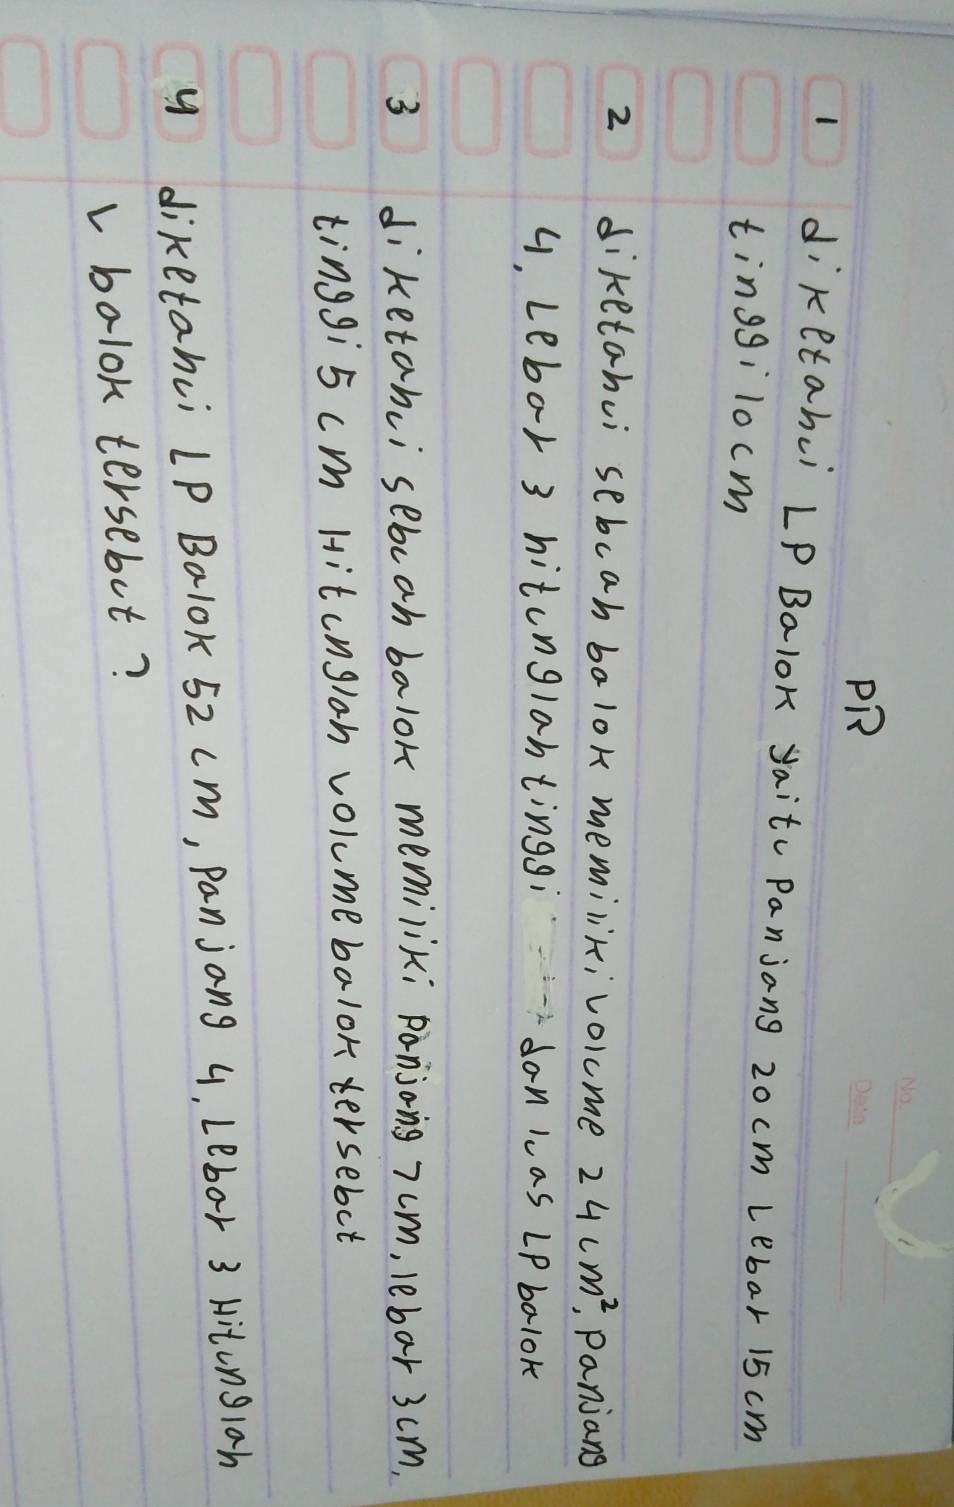 PR
No.
Date
1 diketahui LP Balok yaitu Panjang 20 cm Lebar 15 cm
tinggi 10 cm
2 diketahui sebuah balok memiliki volume 24 cm², Panjang
4, Lebar 3 hitunglah tinggi dan luas LP balok
3 diketahui sebuah balok memiliki Panjang 7 cm, lebar 3 cm,
tinggi 5 cm Hitunglah volume balok tersebut
4 diketahui LP Balok 52 cm, Panjang 4, Lebar 3 Hitunglah
v balok tersebut ?